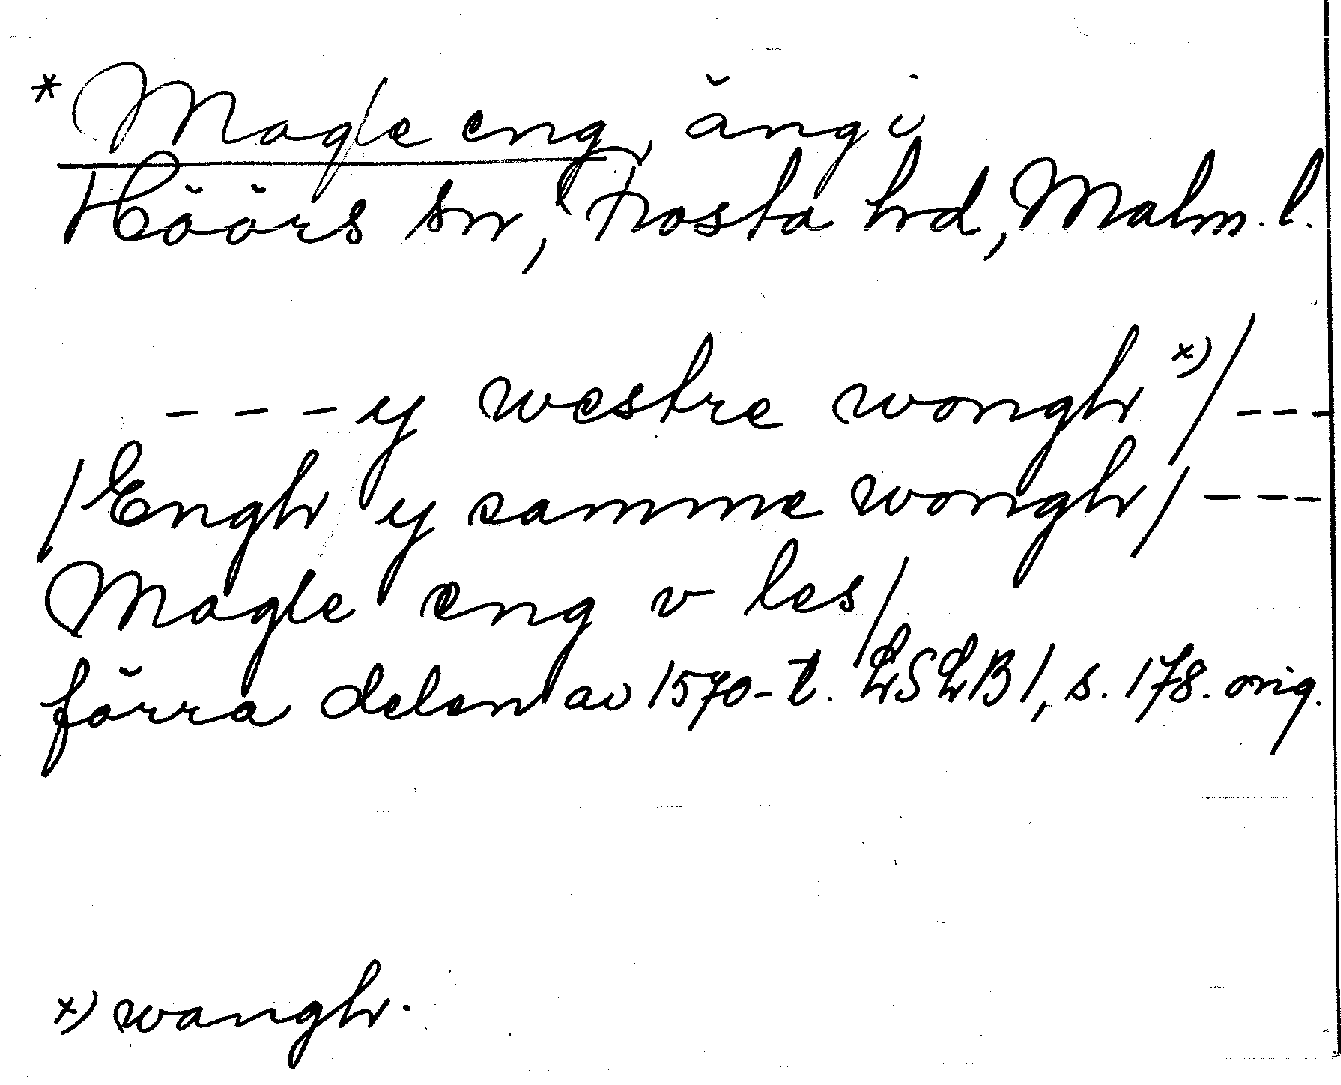 * Magle eng, äng i
Höörs sn, Frosta hrd, Malm. l.
- - - y westre wongh x) / - - -
/ Engh y samme wongh / - - -
Magle eng v les /
förra delen av 1570-t. LSLB 1, s. 178. orig.
x) wangh.